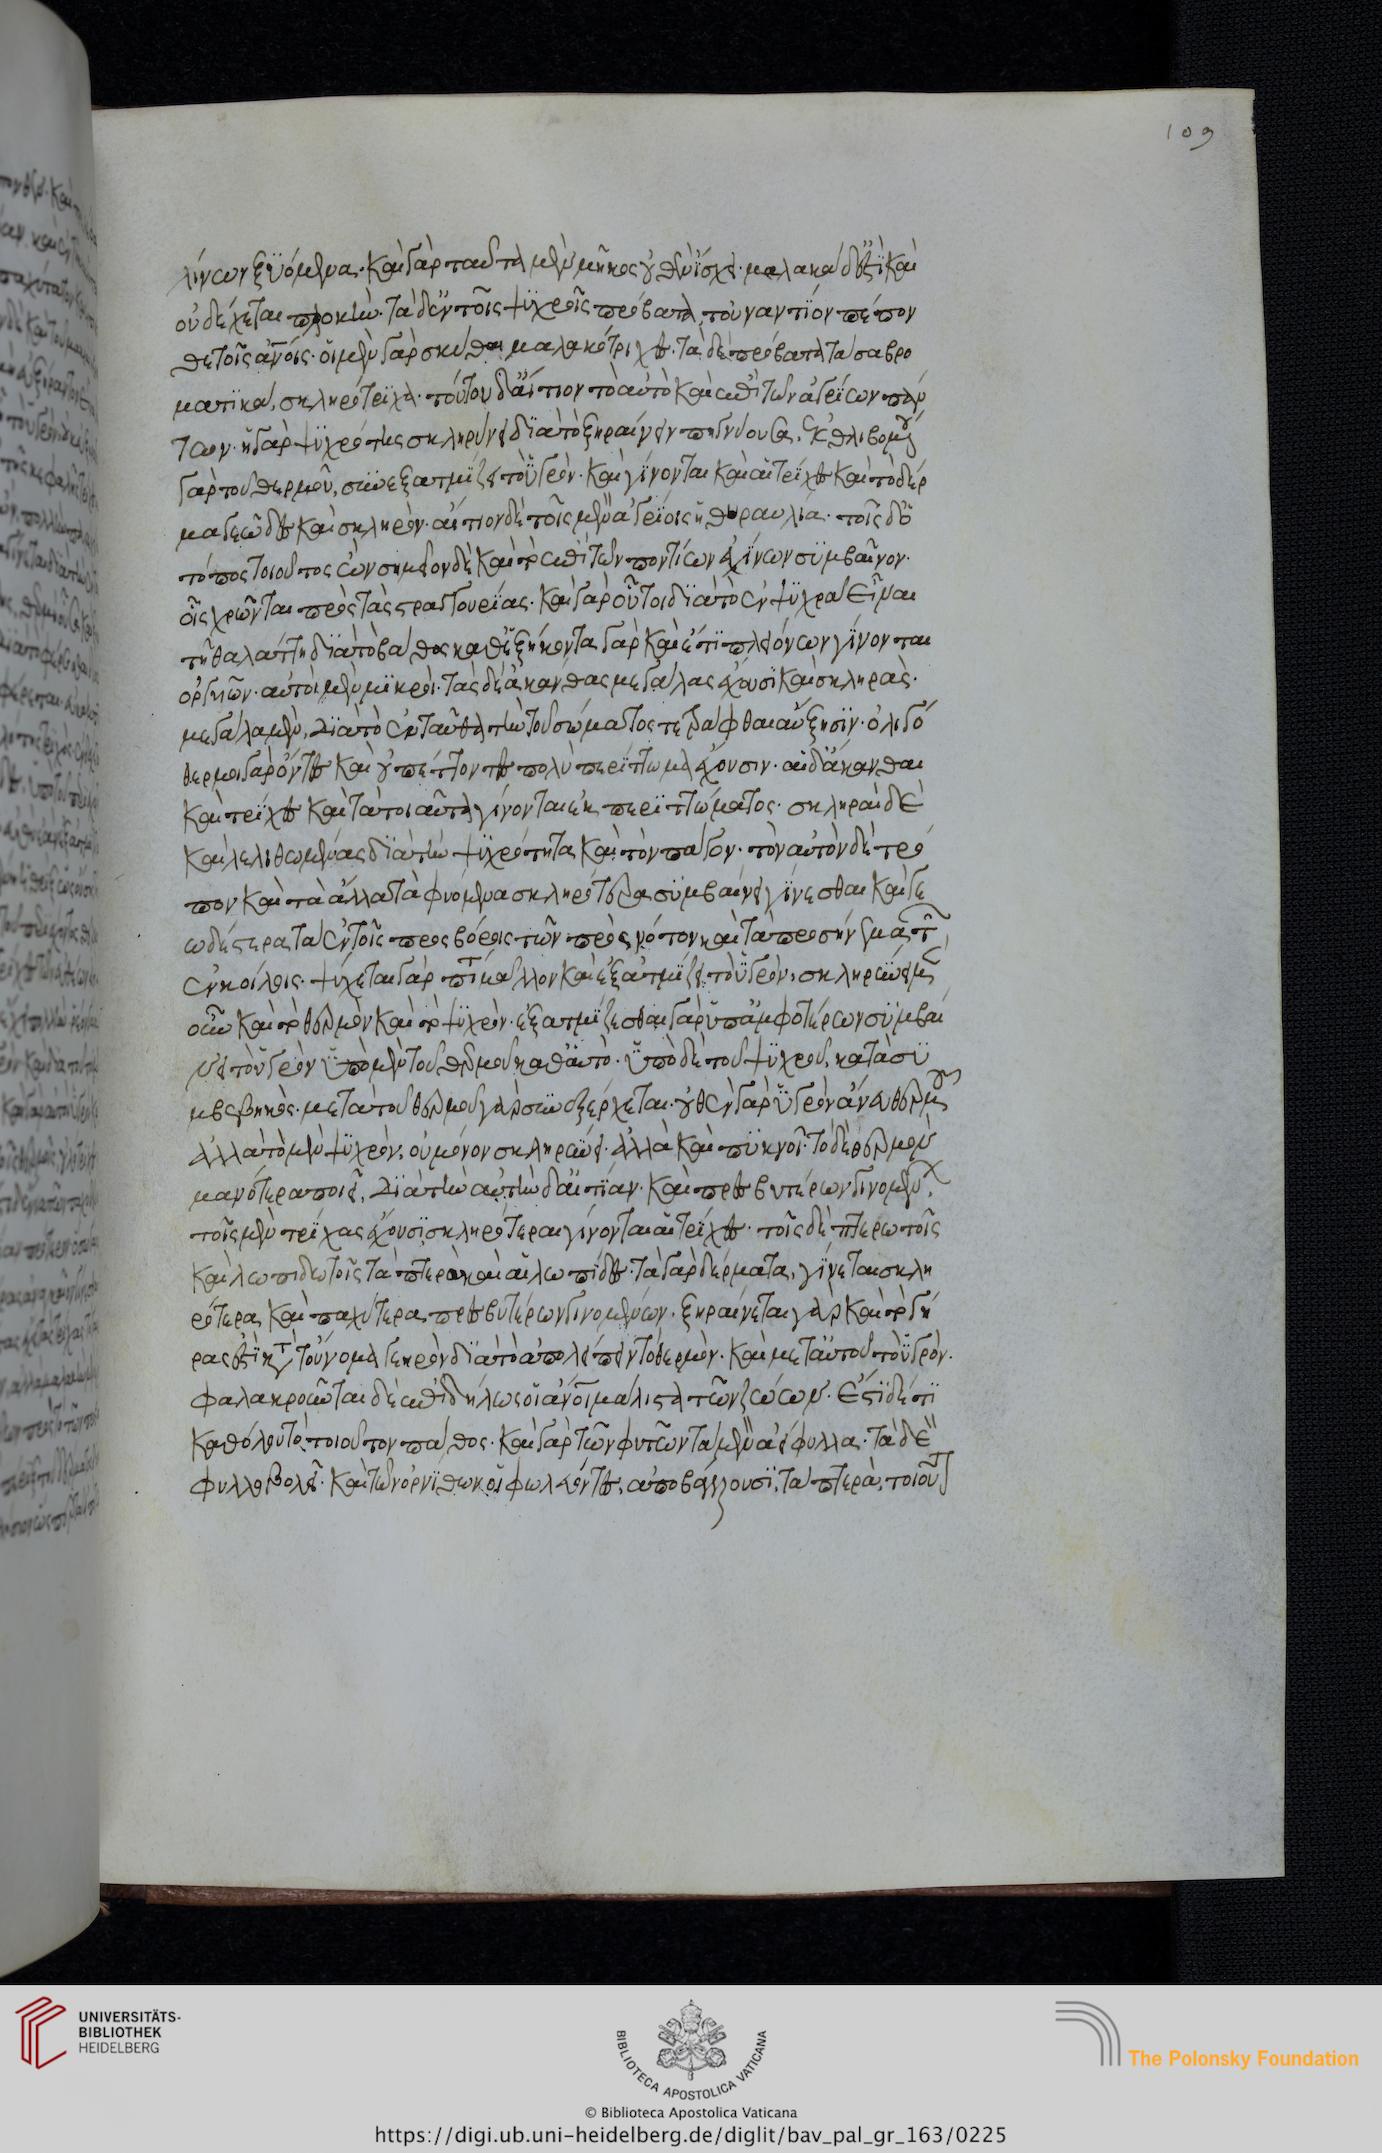 109
λίνων ξυόμενα. καὶ γὰρ ταῦτα μὲν μῆκος οὐθὲν ἴσχει. μαλακὰ δ' ἐστὶ καὶ
οὐ δέχεται πλοκήν. τὰ δ' ἐν τοῖς ψυχροῖς πρόβατα, τοὐναντίον πέπον
θε τοῖς ἀνοις. οἱ μὲν γὰρ σκύθαι μαλακότριχες. τὰ δὲ πρόβατα τὰ σαβρο
ματικὰ, σκληρότριχα. τούτου δ' αἴτιον τὸ αὐτὸ καὶ ἐπὶ τῶν ἀγρίων πάν
των. ἡ γὰρ ψυχρότης σκληρύνει διὰ τὸ ξηραίνειν πηγνύουσα. ἐκθλιβομένου
γὰρ τοῦ θερμοῦ, συνεξατμίζει τὸ ὑγρὸν. καὶ γίνονται καὶ αἱ τρίχες καὶ τὸ δέρ
μα γεῶδες καὶ σκληρὸν. αἴτιον δὲ τοῖς μὲν ἀγρίοις ἡ θυραυλία. τοῖς δ' ὁ
τόπος τοιοῦτος ὢν σημεῖον δὲ καὶ τὸ ἐπὶ τῶν ποντίων ἐχίνων συμβαῖνον.
οἷς χρῶνται πρὸς τὰς στραγγουρίας. καὶ γὰρ οὗτοι διὰ τὸ ἐν ψυχρᾷ εἶναι
τῇ θαλάττῃ διὰ τὸ βάθος καθ' ἑξήκοντα γὰρ καὶ ἔτι πλειόνων γίνονται
ὀργυιῶν. αὐτοὶ μὲν μικροὶ. τὰς δὲ ἀκάνθας μεγάλας ἔχουσι καὶ σκληράς.
μεγάλας μὲν, διὰ τὸ ἐνταῦθα τὴν τοῦ σώματος τετράφθαι αὔξησιν. ὀλιγό
θερμοι γὰρ ὄντες καὶ οὐ πέττοντες πολὺ περίττωμα ἔχουσιν. αἱ δ' ἄκανθαι
καὶ τρίχες καὶ τὰ τοιαῦτα γίνονται ἐκ περιττώματος. σκληρὰς δὲ
καὶ λελιθωμένας διὰ τὴν ψυχρότητα καὶ τὸν πάγον. τὸν αὐτὸν δὲ τρό
πον καὶ τὰ ἄλλα τὰ φυόμενα σκληρότερα συμβαίνει γίνεσθαι καὶ γε
ωδέστερα τὰ ἐν τοῖς προσβόροις τῶν πρὸς νότον καὶ τὰ προσήνεμα τῶν
ἐν κοίλοις. ψύχεται γὰρ πάντα μᾶλλον καὶ ἐξατμίζει τὸ ὑγρὸν. σκληρύνει μὲν
οὖν καὶ τὸ θερμὸν καὶ τὸ ψυχρὸν. ἐξατμίζεσθαι γὰρ ὑπ' ἀμφοτέρων συμβαί
νει τὸ ὑγρὸν ὑπὸ μὲν τοῦ θερμοῦ καθ' αὑτὸ. ὑπὸ δὲ τοῦ ψυχροῦ, κατὰ συ
μβεβηκὸς. μετὰ τοῦ θερμοῦ γὰρ συνεξέρχεται. οὐθὲν γὰρ ὑγρὸν ἄνευ θερμοῦ
ἀλλὰ τὸ μὲν ψυχρὸν, οὐ μόνον σκληρύνει. ἀλλὰ καὶ πυκνοῖ. τὸ δὲ θερμὸν
μανότερα ποιεῖ, διὰ τὴν αὐτὴν δ' αἰτίαν. καὶ πρεσβυτέρων γινομένων,
τοῖς μὲν τρίχας ἔχουσι σκληρότεραι γίνονται αἱ τρίχες. τοῖς δὲ πτερωτοῖς
καὶ λεπιδωτοῖς τὰ πτερὰ καὶ αἱ λεπίδες. τὰ γὰρ δέρματα, γίνεται σκλη
ρότερα καὶ παχύτερα πρεσβυτέρων γινομένων. ξηραίνεται γὰρ καὶ τὸ γῆ
ρας ἐστὶ κατὰ τοὔνομα γεηρὸν διὰ τὸ ἀπολείπειν τὸ θερμὸν. καὶ μετ' αὐτοῦ τὸ ὑγρόν.
φαλακροῦνται δὲ ἐπιδήλως οἱ ἄνοι μάλιστα τῶν ζώων. ἔστι δέ τι
καθόλου τὸ τοιοῦτον πάθος. καὶ γὰρ τῶν φυτῶν τὰ μὲν ἀείφυλλα. τὰ δὲ
φυλλοβολεῖ. καὶ τῶν ὀρνίθων οἱ φωλεύοντες, ἀποβάλλουσι, τὰ πτερὰ, τοιοῦτ
UNIVERSITÄTS-
BIBLIOTHEK
HEIDELBERG
BIBLIOTECA APOSTOLICA VATICANA
The Polonsky Foundation
© Biblioteca Apostolica Vaticana
https://digi.ub.uni-heidelberg.de/diglit/bav_pal_gr_163/0225